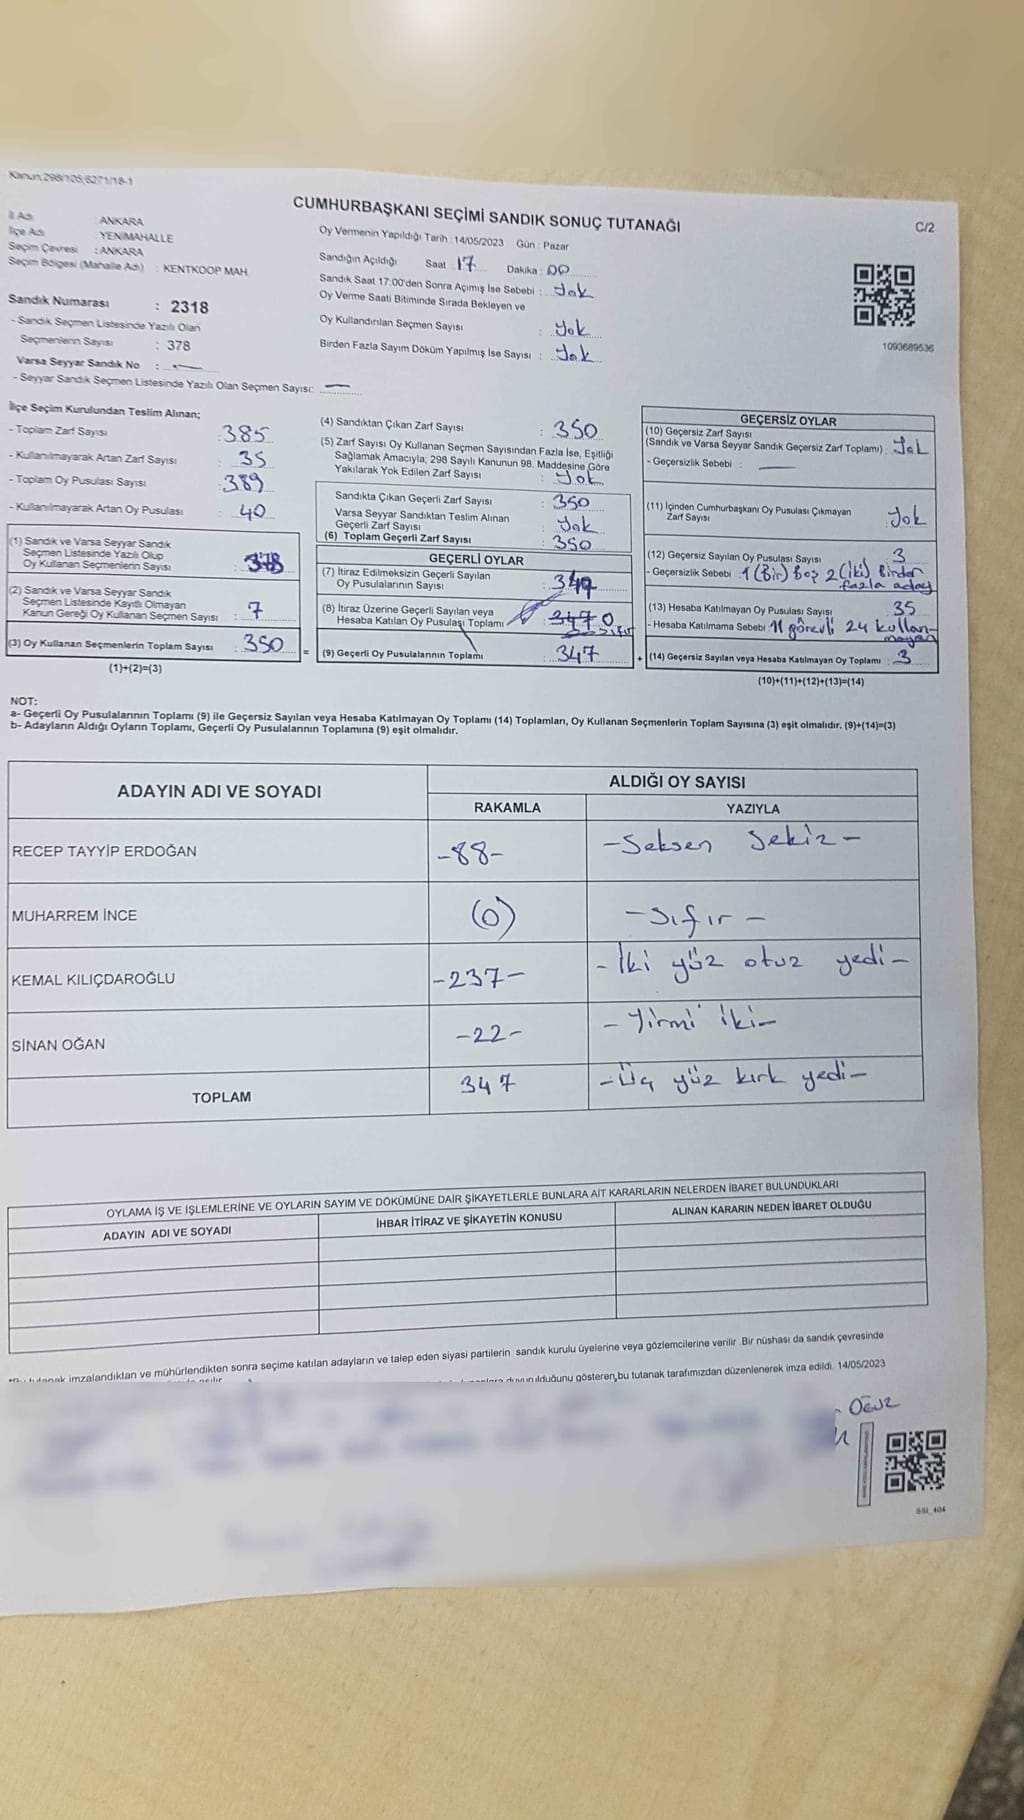 Kanun,298/105,6271/18-1
CUMHURBAŞKANI SEÇİMİ SANDIK SONUÇ TUTANAĞI
C/2
İl Adı : ANKARA
İlçe Adı : YENİMAHALLE
Seçim Çevresi : ANKARA
Seçim Bölgesi (Mahalle Adı) : KENTKOOP MAH.
Sandık Numarası : 2318
- Sandık Seçmen Listesinde Yazılı Olan
Seçmenlerin Sayısı : 378
Varsa Seyyar Sandık No : —
- Seyyar Sandık Seçmen Listesinde Yazılı Olan Seçmen Sayısı: —
Oy Vermenin Yapıldığı Tarih : 14/05/2023 Gün : Pazar
Sandığın Açıldığı Saat 17 Dakika : 00
Sandık Saat 17:00'den Sonra Açımış İse Sebebi : Yok
Oy Verme Saati Bitiminde Sırada Bekleyen ve
Oy Kullandırılan Seçmen Sayısı : Yok
Birden Fazla Sayım Döküm Yapılmış İse Sayısı : Yok
1093689536
İlçe Seçim Kurulundan Teslim Alınan;
- Toplam Zarf Sayısı : 385
- Kullanılmayarak Artan Zarf Sayısı : 35
- Toplam Oy Pusulası Sayısı : 389
- Kullanılmayarak Artan Oy Pusulası : 40
(1) Sandık ve Varsa Seyyar Sandık
Seçmen Listesinde Yazılı Olup
Oy Kullanan Seçmenlerin Sayısı :
(2) Sandık ve Varsa Seyyar Sandık
Seçmen Listesinde Kayıtlı Olmayan
Kanun Gereği Oy Kullanan Seçmen Sayısı : 7
(3) Oy Kullanan Seçmenlerin Toplam Sayısı : 350
(1)+(2)=(3)
=
(4) Sandıktan Çıkan Zarf Sayısı : 350
(5) Zarf Sayısı Oy Kullanan Seçmen Sayısından Fazla İse, Eşitliği
Sağlamak Amacıyla; 298 Sayılı Kanunun 98. Maddesine Göre
Yakılarak Yok Edilen Zarf Sayısı : Yok
Sandıkta Çıkan Geçerli Zarf Sayısı : 350
Varsa Seyyar Sandıktan Teslim Alınan
Geçerli Zarf Sayısı : Yok
(6) Toplam Geçerli Zarf Sayısı : 350
GEÇERLİ OYLAR
(7) İtiraz Edilmeksizin Geçerli Sayılan
Oy Pusulalarının Sayısı : 347
(8) İtiraz Üzerine Geçerli Sayılan veya
Hesaba Katılan Oy Pusulası Toplamı : 347 0
Sıfır
(9) Geçerli Oy Pusulalarının Toplamı : 347
+
GEÇERSİZ OYLAR
(10) Geçersiz Zarf Sayısı
(Sandık ve Varsa Seyyar Sandık Geçersiz Zarf Toplamı) : Yok
- Geçersizlik Sebebi : —
(11) İçinden Cumhurbaşkanı Oy Pusulası Çıkmayan
Zarf Sayısı : Yok
(12) Geçersiz Sayılan Oy Pusulası Sayısı : 3
- Geçersizlik Sebebi : 1 (Bir) Boş 2 (iki) Birden
fazla aday
(13) Hesaba Katılmayan Oy Pusulası Sayısı : 35
- Hesaba Katılmama Sebebi : 11 görevli 24 kullan-
mayan
(14) Geçersiz Sayılan veya Hesaba Katılmayan Oy Toplamı : 3
(10)+(11)+(12)+(13)=(14)
NOT:
a- Geçerli Oy Pusulalarının Toplamı (9) ile Geçersiz Sayılan veya Hesaba Katılmayan Oy Toplamı (14) Toplamları, Oy Kullanan Seçmenlerin Toplam Sayısına (3) eşit olmalıdır. (9)+(14)=(3)
b- Adayların Aldığı Oyların Toplamı, Geçerli Oy Pusulalarının Toplamına (9) eşit olmalıdır.
ADAYIN ADI VE SOYADI
ALDIĞI OY SAYISI
RAKAMLA YAZIYLA
RECEP TAYYİP ERDOĞAN -88- -Seksen Sekiz-
MUHARREM İNCE (0) -Sıfır-
KEMAL KILIÇDAROĞLU -237- -İki yüz otuz yedi-
SİNAN OĞAN -22- -Yirmi iki-
TOPLAM 347 -Üç yüz kırk yedi-
OYLAMA İŞ VE İŞLEMLERİNE VE OYLARIN SAYIM VE DÖKÜMÜNE DAİR ŞİKAYETLERLE BUNLARA AİT KARARLARIN NELERDEN İBARET BULUNDUKLARI
ADAYIN ADI VE SOYADI İHBAR İTİRAZ VE ŞİKAYETİN KONUSU ALINAN KARARIN NEDEN İBARET OLDUĞU
tutanak imzalandıktan ve mühürlendikten sonra seçime katılan adayların ve talep eden siyasi partilerin sandık kurulu üyelerine veya gözlemcilerine verilir .Bir nüshası da sandık çevresinde
duyurulduğunu gösteren,bu tutanak tarafımızdan düzenlenerek imza edildi. 14/05/2023
OĞUZ